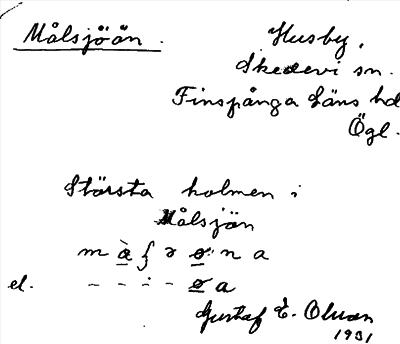 Målsjöön.
Husby,
Skedevi sn.
Finspånga läns hd
Ögl.
Största holmen i
Målsjön
el. - - - -
Gustaf E. Olsson
1931